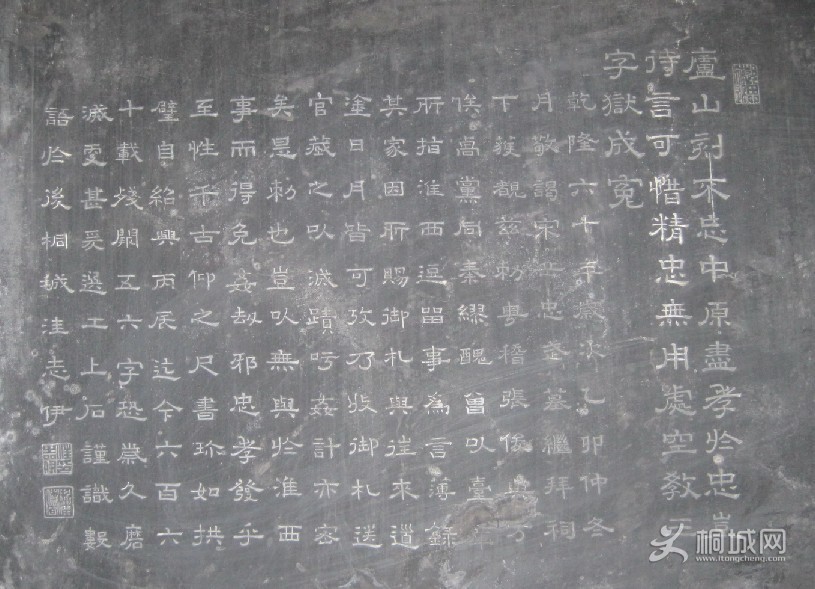 廬山刻不忘中原盡孝於忠豈
待言可惜精忠無用處空教三
字獄成冤
乾隆六十年歲次乙卯仲冬
月敬謁宋岳忠武墓繼拜祠
下獲覩茲勅粤稽張俊與万
俟卨黨同秦繆醜曾以臺
所指淮西逗留事為言薄錄
其家因所賜御札與往來道
塗日月皆可攷乃收御札送
官藏之以滅蹟吁姦計亦容
矣是勅也豈以無與於淮西
事而得免姦劫邪忠孝發乎
至性千古仰之尺書珎如拱
璧自紹興丙辰迄今六百六
十載殘闕五六字恐歲久磨
滅更甚爰選工上石謹識數
語於後桐城汪志伊
桐城网
www.itongcheng.com